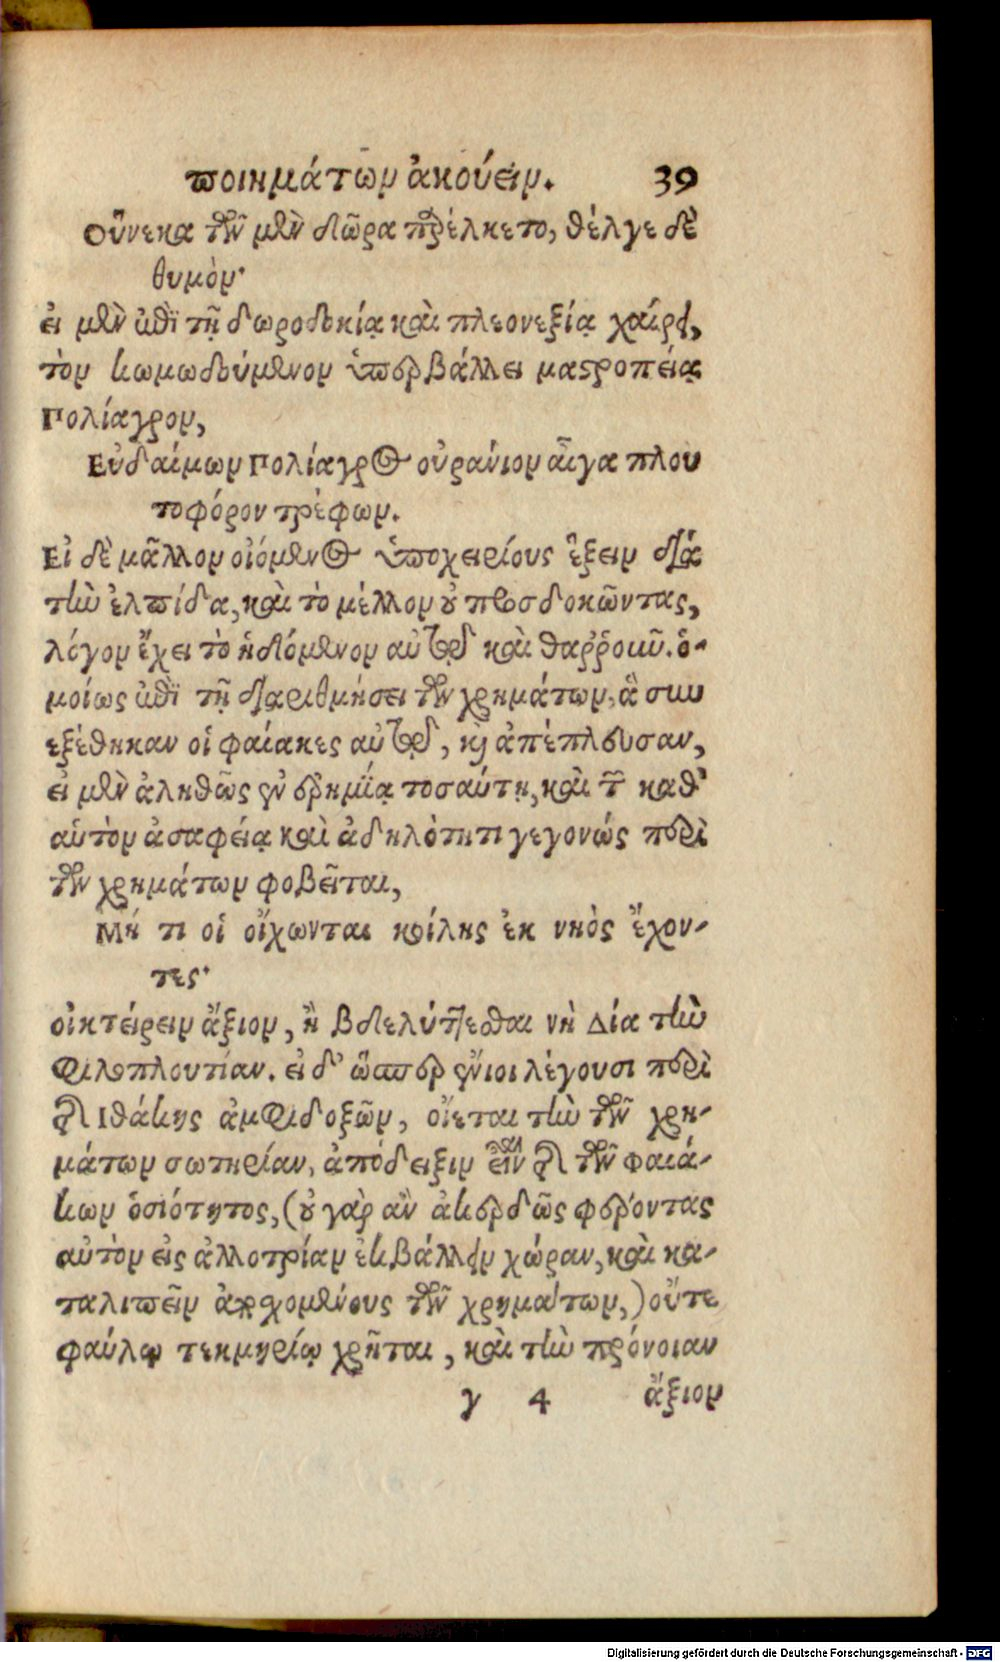 ποιημάτων ἀκούειν. 39
Οὕνεκα τῶν μὲν δῶρα παρέλκετο, θέλγε δὲ
θυμὸν·
εἰ μὲν ἐπὶ τῇ δωροδοκίᾳ καὶ πλεονεξίᾳ χαίρει,
τὸν κωμῳδούμενον ὑπερβάλλει μαστροπείᾳ
Πολίαγρον,
Εὐδαίμων Πολίαγρος οὐράνιον αἶγα πλου
τοφόρον τρέφων.
Εἰ δὲ μᾶλλον οἰόμενος ὑποχειρίους ἕξειν διὰ
τὴν ἐλπίδα, καὶ τὸ μέλλον οὐ προσδοκῶντας,
λόγον ἔχει τὸ ἡδόμενον αὐτοῦ καὶ θαῤῥοῦν. ὁ-
μοίως ἐπὶ τῇ διαριθμήσει τῶν χρημάτων, ἃ συν
εξέθηκαν οἱ φαίακες αὐτοῦ, καὶ ἀπέπλευσαν,
εἰ μὲν ἀληθῶς ἐν ἐρημίᾳ τοσαύτῃ, καὶ τῶν καθ'
αὑτὸν ἀσαφείᾳ καὶ ἀδηλότητι γεγονώς περὶ
τῶν χρημάτων φοβεῖται,
Μή τι οἱ οἴχωνται κοίλης ἐκ νηὸς ἔχον-
τες·
οἰκτείρειν ἄξιον, ἢ βδελύττεσθαι νὴ Δία τὴν
φιλοπλουτίαν. εἰ δ' ὥσπερ ἔνιοι λέγουσι περὶ
τῆς Ἰθάκης ἀμφιδοξῶν, οἴεται τὴν τῶν χρη-
μάτων σωτηρίαν, ἀπόδειξιν εἶναι τῆς τῶν Φαιά-
κων ὁσιότητος, (οὐ γὰρ ἂν ἀκερδῶς φέροντας
αὐτὸν εἰς ἀλλοτρίαν ἐκβάλλειν χώραν, καὶ κα-
ταλιπεῖν ἀποσχομένους τῶν χρημάτων,) οὔτε
φαύλῳ τεκμηρίῳ χρῆται, καὶ τὴν πρόνοιαν
γ 4 ἄξιον
Digitalisierung gefördert durch die Deutsche Forschungsgemeinschaft - DFG